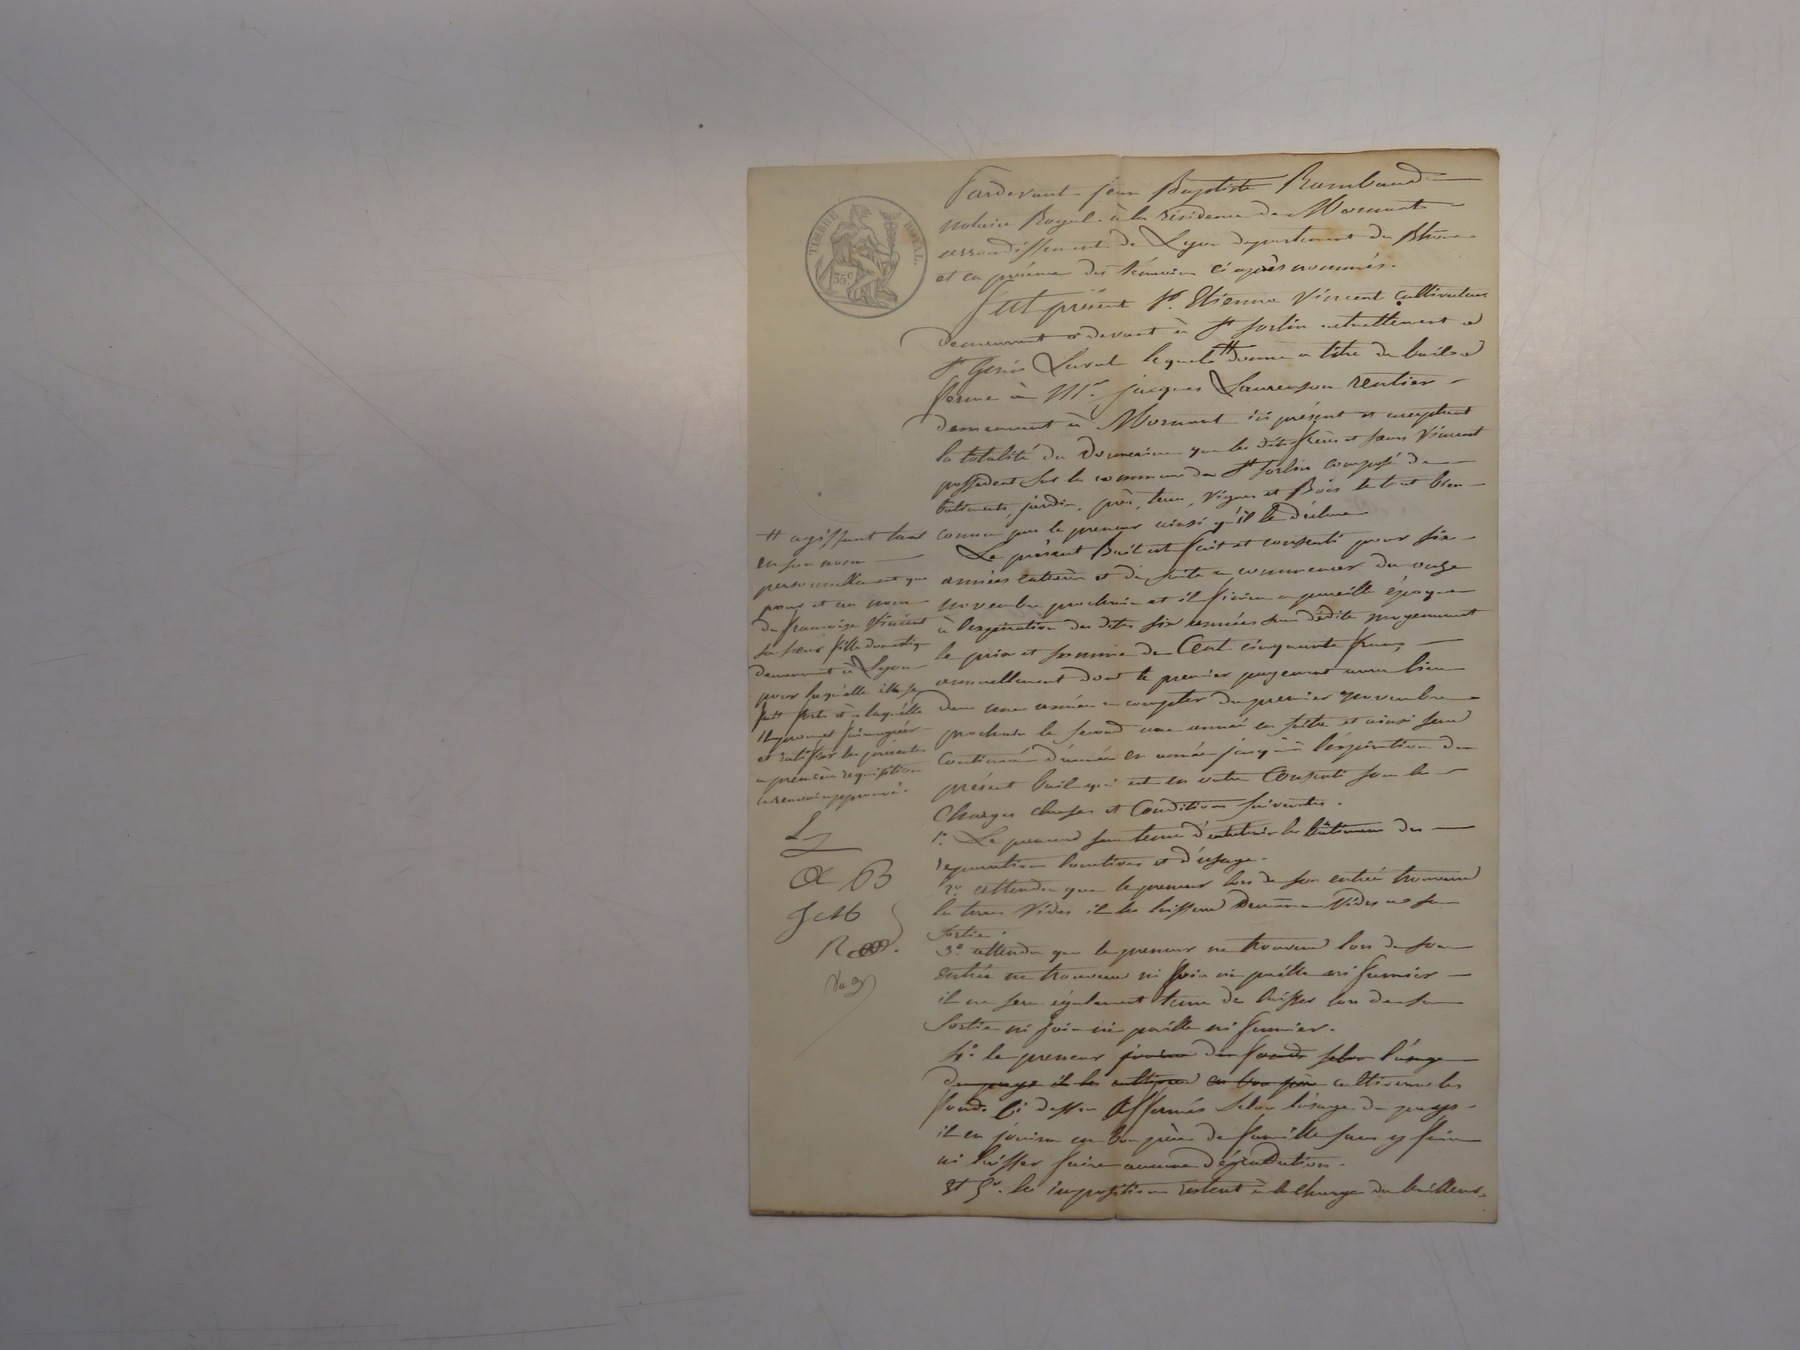 TIMBRE ROYAL.
35c
Pardevant Jean Baptiste Rambaud
notaire Royal à la résidence de Mornant
arrondissement de Lyon departement du Rhone
et en présence des témoins ci après nommés.
Fut présent Sr. Etienne Vincent cultivateur
demeurant cidevant à St Sorlin actuellement à
St Genis Laval lequel # donne a titre de bail à
ferme à Mr. jacques Laurenson rentier
demeurant à Mornant ici présent et acceptant
la totalité du Domaine que les dits frère et sœur Vincent
possedent sur la commune de St Sorlin composé de
batiments, jardin, prés, terres, vignes et Bois le tout bien
connu par le preneur ainsi qu'il le déclare
Le présent Bail est fait et consenti pour six
années entières et de suite a commencer du onze
novembre prochain et il finira a pareille époque
à l'expiration des dites six années sans dédite moyennant
le prix et somme de Cent cinquante francs
annuellement dont le premier payement aura lieu
dans une année a compter du premier novembre
prochain le second une année en suitte et ainsi sera
continué d'année en année jusqu'à l'éxpiration du
présent bail qui est en outre Consenti sous les
Charges clauses et Conditions suivantes.
1o. Le preneur sera tenu d'entretenir les bâtimens des
reparations locatives et d'usage.
2o. attendu que le preneur lors de son entrée trouvera
les terres Vides il les laissera de même Vides a sa
sortie.
3o attendu que le preneur ne trouvera lors de son
entrée ne trouvera ni foin ni paille ni fumier
il ne sera également tenu de laisser lors de sa
Sortie ni foin ni paille ni fumier.
4o. le preneur jouira des fonds selon l'usage
du pays il les cultivera en bon père cultivera les
fonds Ci dessus affermés selon l'usage du pays
il en jouira en bon père de famille sans y faire
ni laisser faire aucune dégradation.
Et 5o. les impositions restent à la charge du bailleur.
# agissant tant
en son nom
personnellement que
pour et au nom
de francoise Vincent
sa sœur fille domestique
demeurant à Lyon
pour laquelle il se
fait fort et à laquelle
il promet faire agréer
et ratifier les présentes
a première requisition
ce renvoi approuvé.
L
B